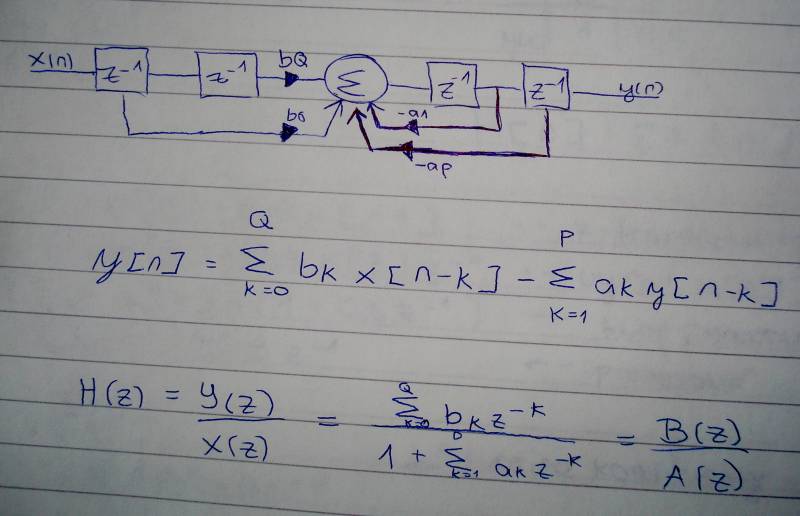 x(n) z⁻¹ z⁻¹ bQ Σ z⁻¹ z⁻¹ y(n)
b0 -a1
-ap
y[n] = Σ_{k=0}^{Q} bk x[n-k] - Σ_{k=1}^{P} ak y[n-k]
H(z) = Y(z)/X(z) = Σ_{k=0}^{Q} bk z^{-k} / 1 + Σ_{k=1}^{P} ak z^{-k} = B(z)/A(z)